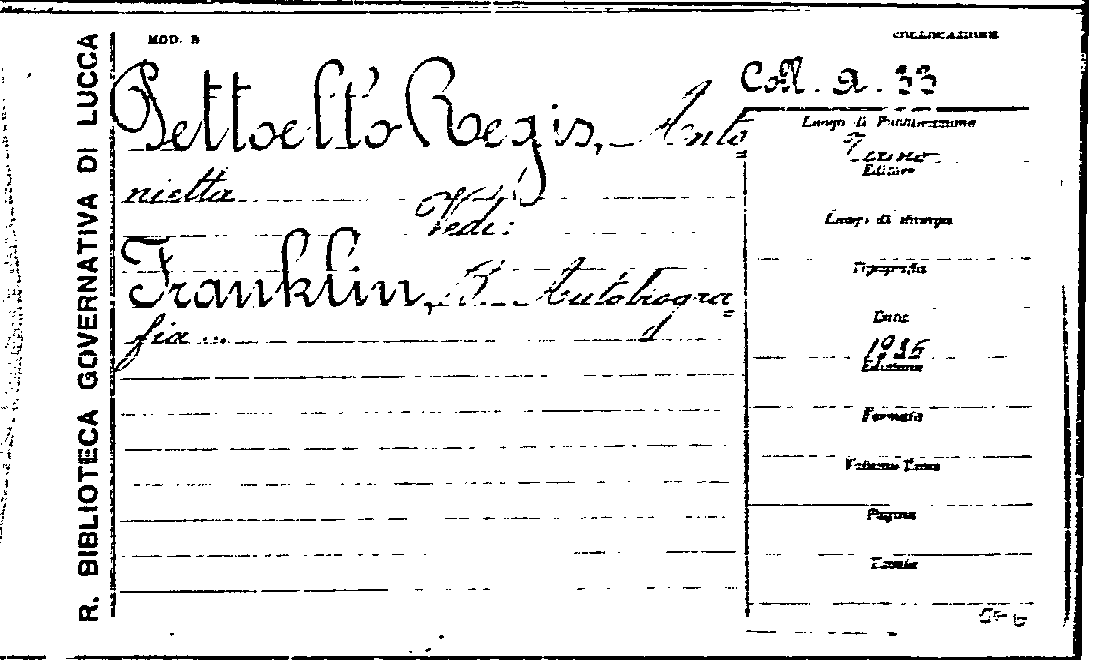 R. BIBLIOTECA GOVERNATIVA DI LUCCA
MOD. B
COLLOCAZIONE
Coll. a. 33
Pettoello Regis, Anto=
nietta
Vedi:
Franklin, B. Autobiogra=
fia ...
Luogo di Pubblicazione
Editore
Luogo di stampa
Tipografia
Anno
Edizione
Formato
Volume
Pagine
Tavole